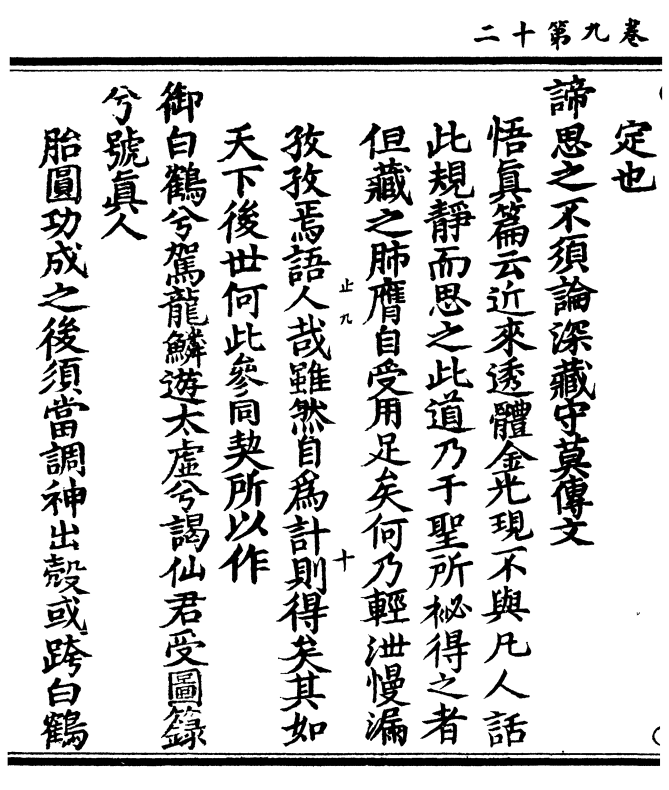 卷九第十二
定也
諦思之不須論深藏守莫傳文
悟眞篇云近來透體金光現不與凡人話
此規靜而思之此道乃千聖所祕得之者
但藏之肺膺自受用足矣何乃輕泄慢漏
孜孜焉語人哉雖然自爲計則得矣其如
止九
十
天下後世何此參同契所以作
御白鶴兮駕龍鱗遊太虛兮謁仙君受圖籙
兮號眞人
胎圓功成之後須當調神出殼或跨白鶴